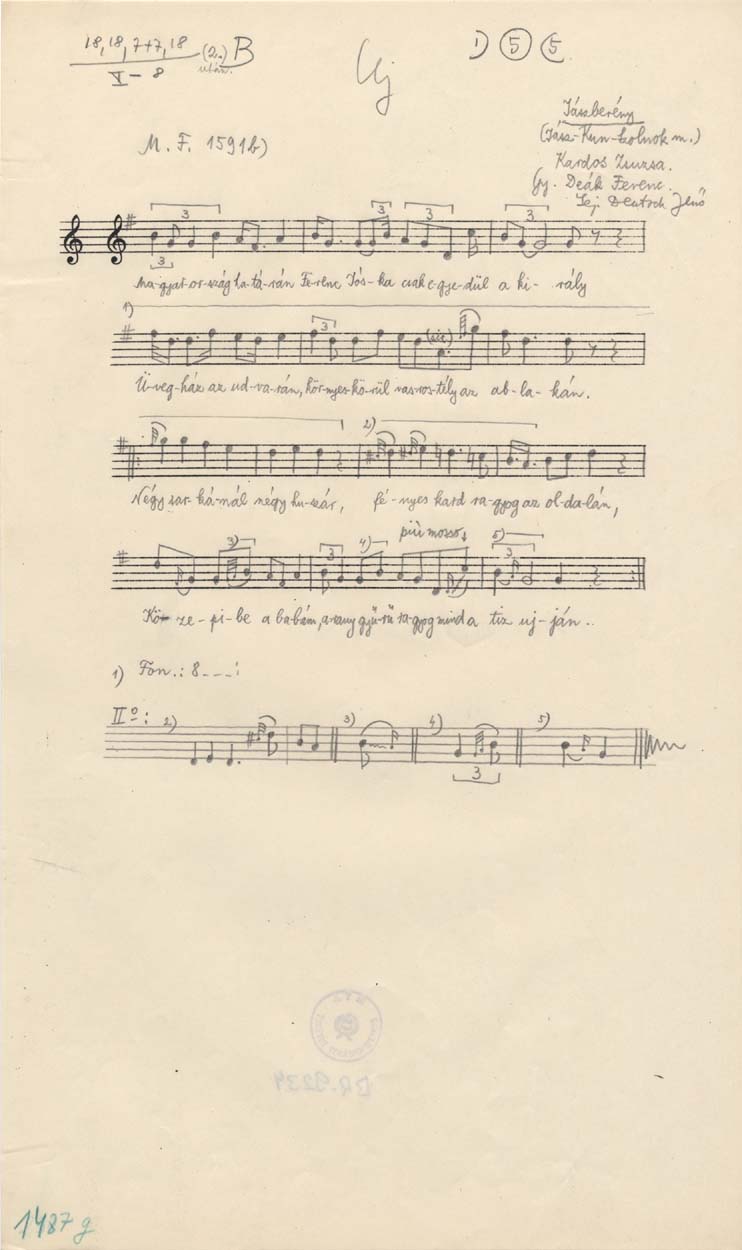 18, 18, 7+7, 18 (2.) B
V - 8 után.
Uj
1) 5 5
M. F. 1591b)
Jászberény
(Jász-Kun-Szolnok m.)
Kardos Zsuzsa.
Gy. Deák Ferenc.
Lej. Deutsch Jenő
3 3 3 3
3
Ma-gyar-or-szág ha-tá-rán Fe-renc Jós-ka csak e-gye-dül a ki- rály
1)
3 (sic)
Ü-veg-ház az ud-va-rán, kör-nyes-kö-rül vas-ros-tély az ab-la-kán.
2)
Négy sar-ká-nál négy hu-szár, fé-nyes kard ra-gyog az ol-da-lán,
più mosso
3) 3 4) 5) 3
Kö- ze-pi-be a ba-bám, a-rany gyű-rű ra-gyog mind a tíz uj-ján..
1) Fon.: 8---:
IIº: 2) 3) 4) 5)
3
1487 g